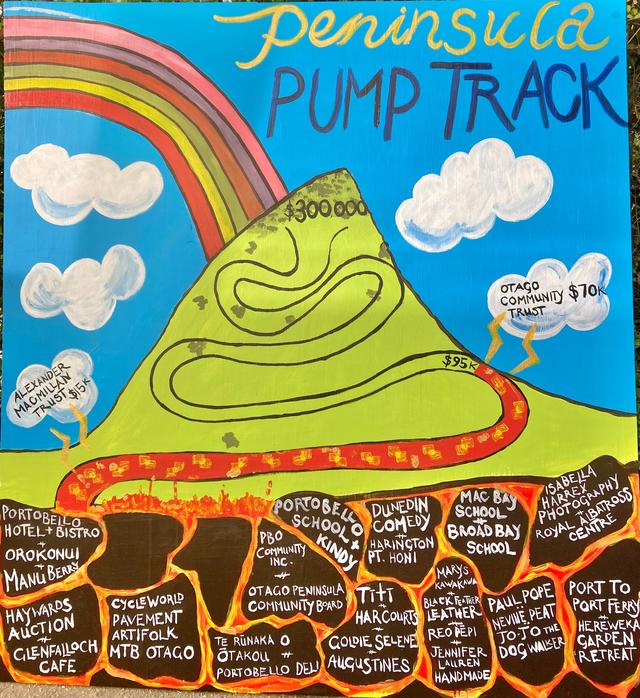 Peninsula
PUMP TRACK
$300000
OTAGO
COMMUNITY $70K
TRUST
$95K
ALEXANDER
MACMILLAN
TRUST $15K
PORTOBELLO
HOTEL + BISTRO
+
OROKONUI
+
MANU BERRY
HAYWARDS
AUCTION
+
GLENFALLOCH
CAFE
CYCLEWORLD
PAVEMENT
ARTIFOLK
MTB OTAGO
PBO
COMMUNITY
INC.
+
OTAGO PENINSULA
COMMUNITY BOARD
TE RŪNAKA O
ŌTAKOU +
PORTOBELLO DELI
PORTOBELLO
SCHOOL +
KINDY
DUNEDIN
COMEDY
+
HARINGTON
PT. HONI
TITI
+
HARCOURTS
+
GOLDIE SELENE
+
AUGUSTINES
MAC BAY
SCHOOL
+
BROAD BAY
SCHOOL
MARYS
KAWAKAWA
+
BLACK FEATHER
LEATHER
+
REO PĒPI
+
JENNIFER
LAUREN
HANDMADE
ISABELLA
HARREX
PHOTOGRAPHY
+
ROYAL ALBATROSS
CENTRE
PAUL POPE
+
NEVILLE PEAT
+
JO-JO THE
DOG WALKER
PORT TO
PORT FERRY
+
HEREWEKA
GARDEN
RETREAT